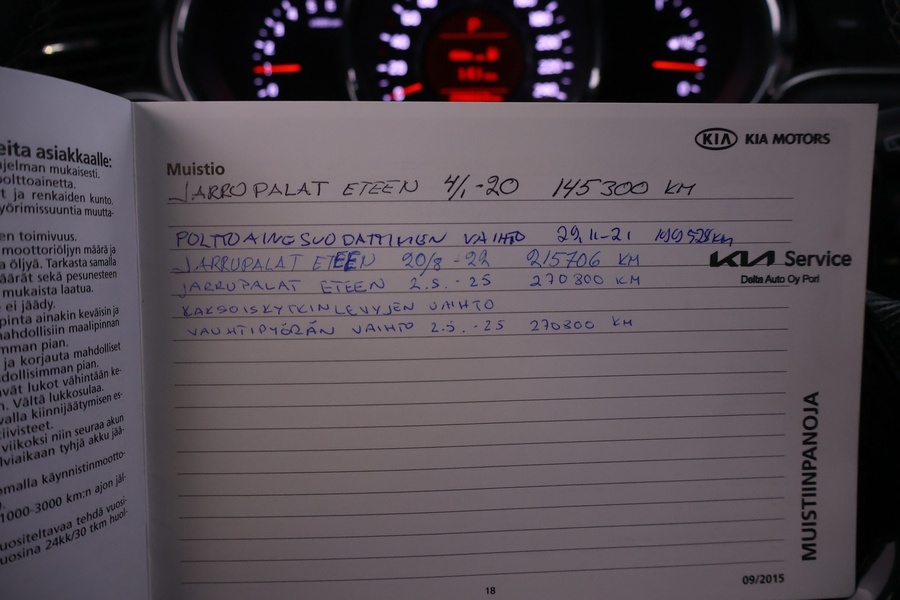 KIA MOTORS
Muistio
JARRUPALAT ETEEN 4/1-20 145300 KM
POLTTOAINESUODATTIMEN VAIHTO 29.11-21 199528KM
JARRUPALAT ETEEN 20/8-22 215706 KM
KIA Service
Delta Auto Oy Pori
JARRUPALAT ETEEN 2.5.-25 270800 KM
KAKSOISKYTKINLEVYJEN VAIHTO
VAUHTIPYÖRÄN VAIHTO 2.5.-25 270800 KM
MUISTIINPANOJA
18
09/2015
eita asiakkaalle:
jelman mukaisesti.
polttoainetta.
t ja renkaiden kunto.
yörimissuuntia muutta-
en toimivuus.
moottoriöljyn määrä ja
a öljyä. Tarkasta samalla
äärät sekä pesunesteen
mukaista laatua.
e ei jäädy.
pinta ainakin keväisin ja
mahdollisiin maalipinnan
imman pian.
ja korjauta mahdolliset
dollisimman pian.
vät lukot vähintään ke-
n. Vältä lukkosulaa.
valla kiinnijäätymisen es-
tiivisteet.
viikoksi niin seuraa akun
lviaikaan tyhjä akku jää-
omalla käynnistinmootto-
1000-3000 km:n ajon jäl-
uositeltavaa tehdä vuosi-
uosina 24kk/30 tkm huol-